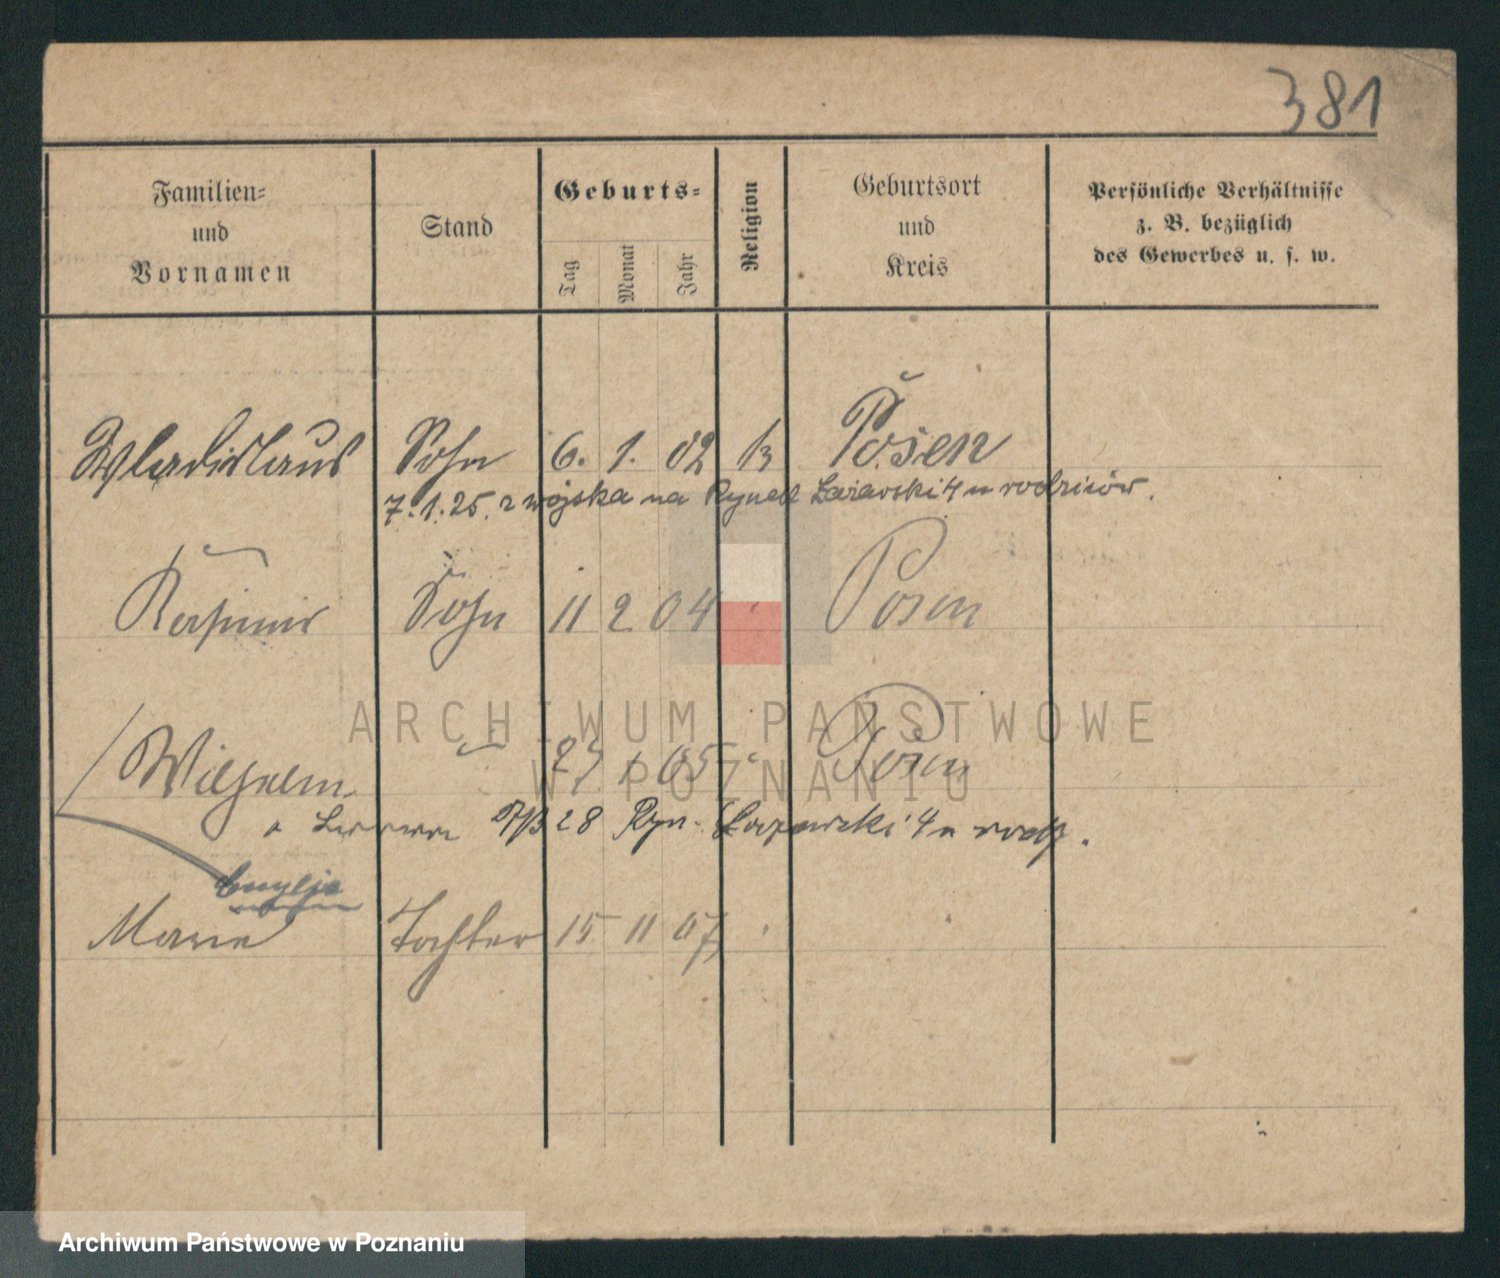 381
Familien=
und
Vornamen
Stand
Geburts=
Tag
Monat
Jahr
Religion
Geburtsort
und
Kreis
Persönliche Verhältnisse
z. B. bezüglich
des Gewerbes u. s. w.
Wladislaus Sohn 6. 1. 02 k Posen
7.1.25. z wojska na Rynek Łazarski 4 u rodziców.
Kasimir Sohn 11 2 04 Posen
Wilhelm 27 1 05 Posen
28 Ryn. Łazarski 4 u rodz.
Marie Tochter 15 11 07
ARCHIWUM PAŃSTWOWE
W POZNANIU
Archiwum Państwowe w Poznaniu